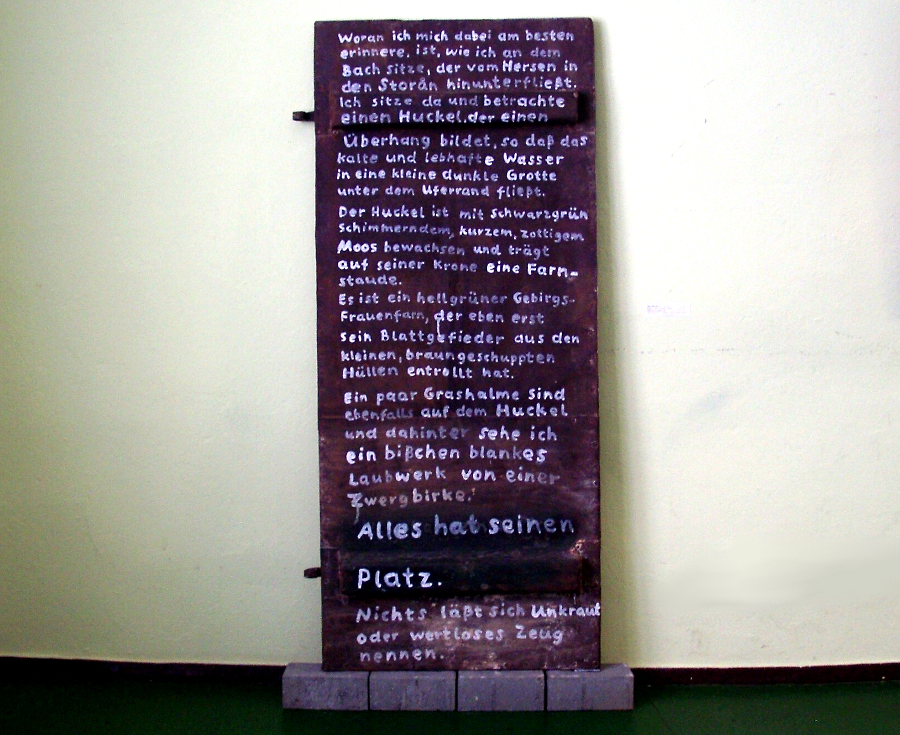 Woran ich mich dabei am besten
erinnere, ist, wie ich an dem
Bach sitze, der vom Hersen in
den Storån hinunterfließt.
Ich sitze da und betrachte
einen Huckel, der einen
Überhang bildet, so daß das
kalte und lebhafte Wasser
in eine kleine dunkle Grotte
unter dem Uferrand fließt.
Der Huckel ist mit schwarzgrün
schimmerndem, kurzem, zottigem
Moos bewachsen und trägt
auf seiner Krone eine Farn-
staude.
Es ist ein hellgrüner Gebirgs-
Frauenfarn, der eben erst
sein Blattgefieder aus den
kleinen, braungeschuppten
Hüllen entrollt hat.
Ein paar Grashalme sind
ebenfalls auf dem Huckel
und dahinter sehe ich
ein bißchen blankes
Laubwerk von einer
Zwergbirke.
Alles hat seinen
Platz.
Nichts läßt sich Unkraut
oder wertloses Zeug
nennen.